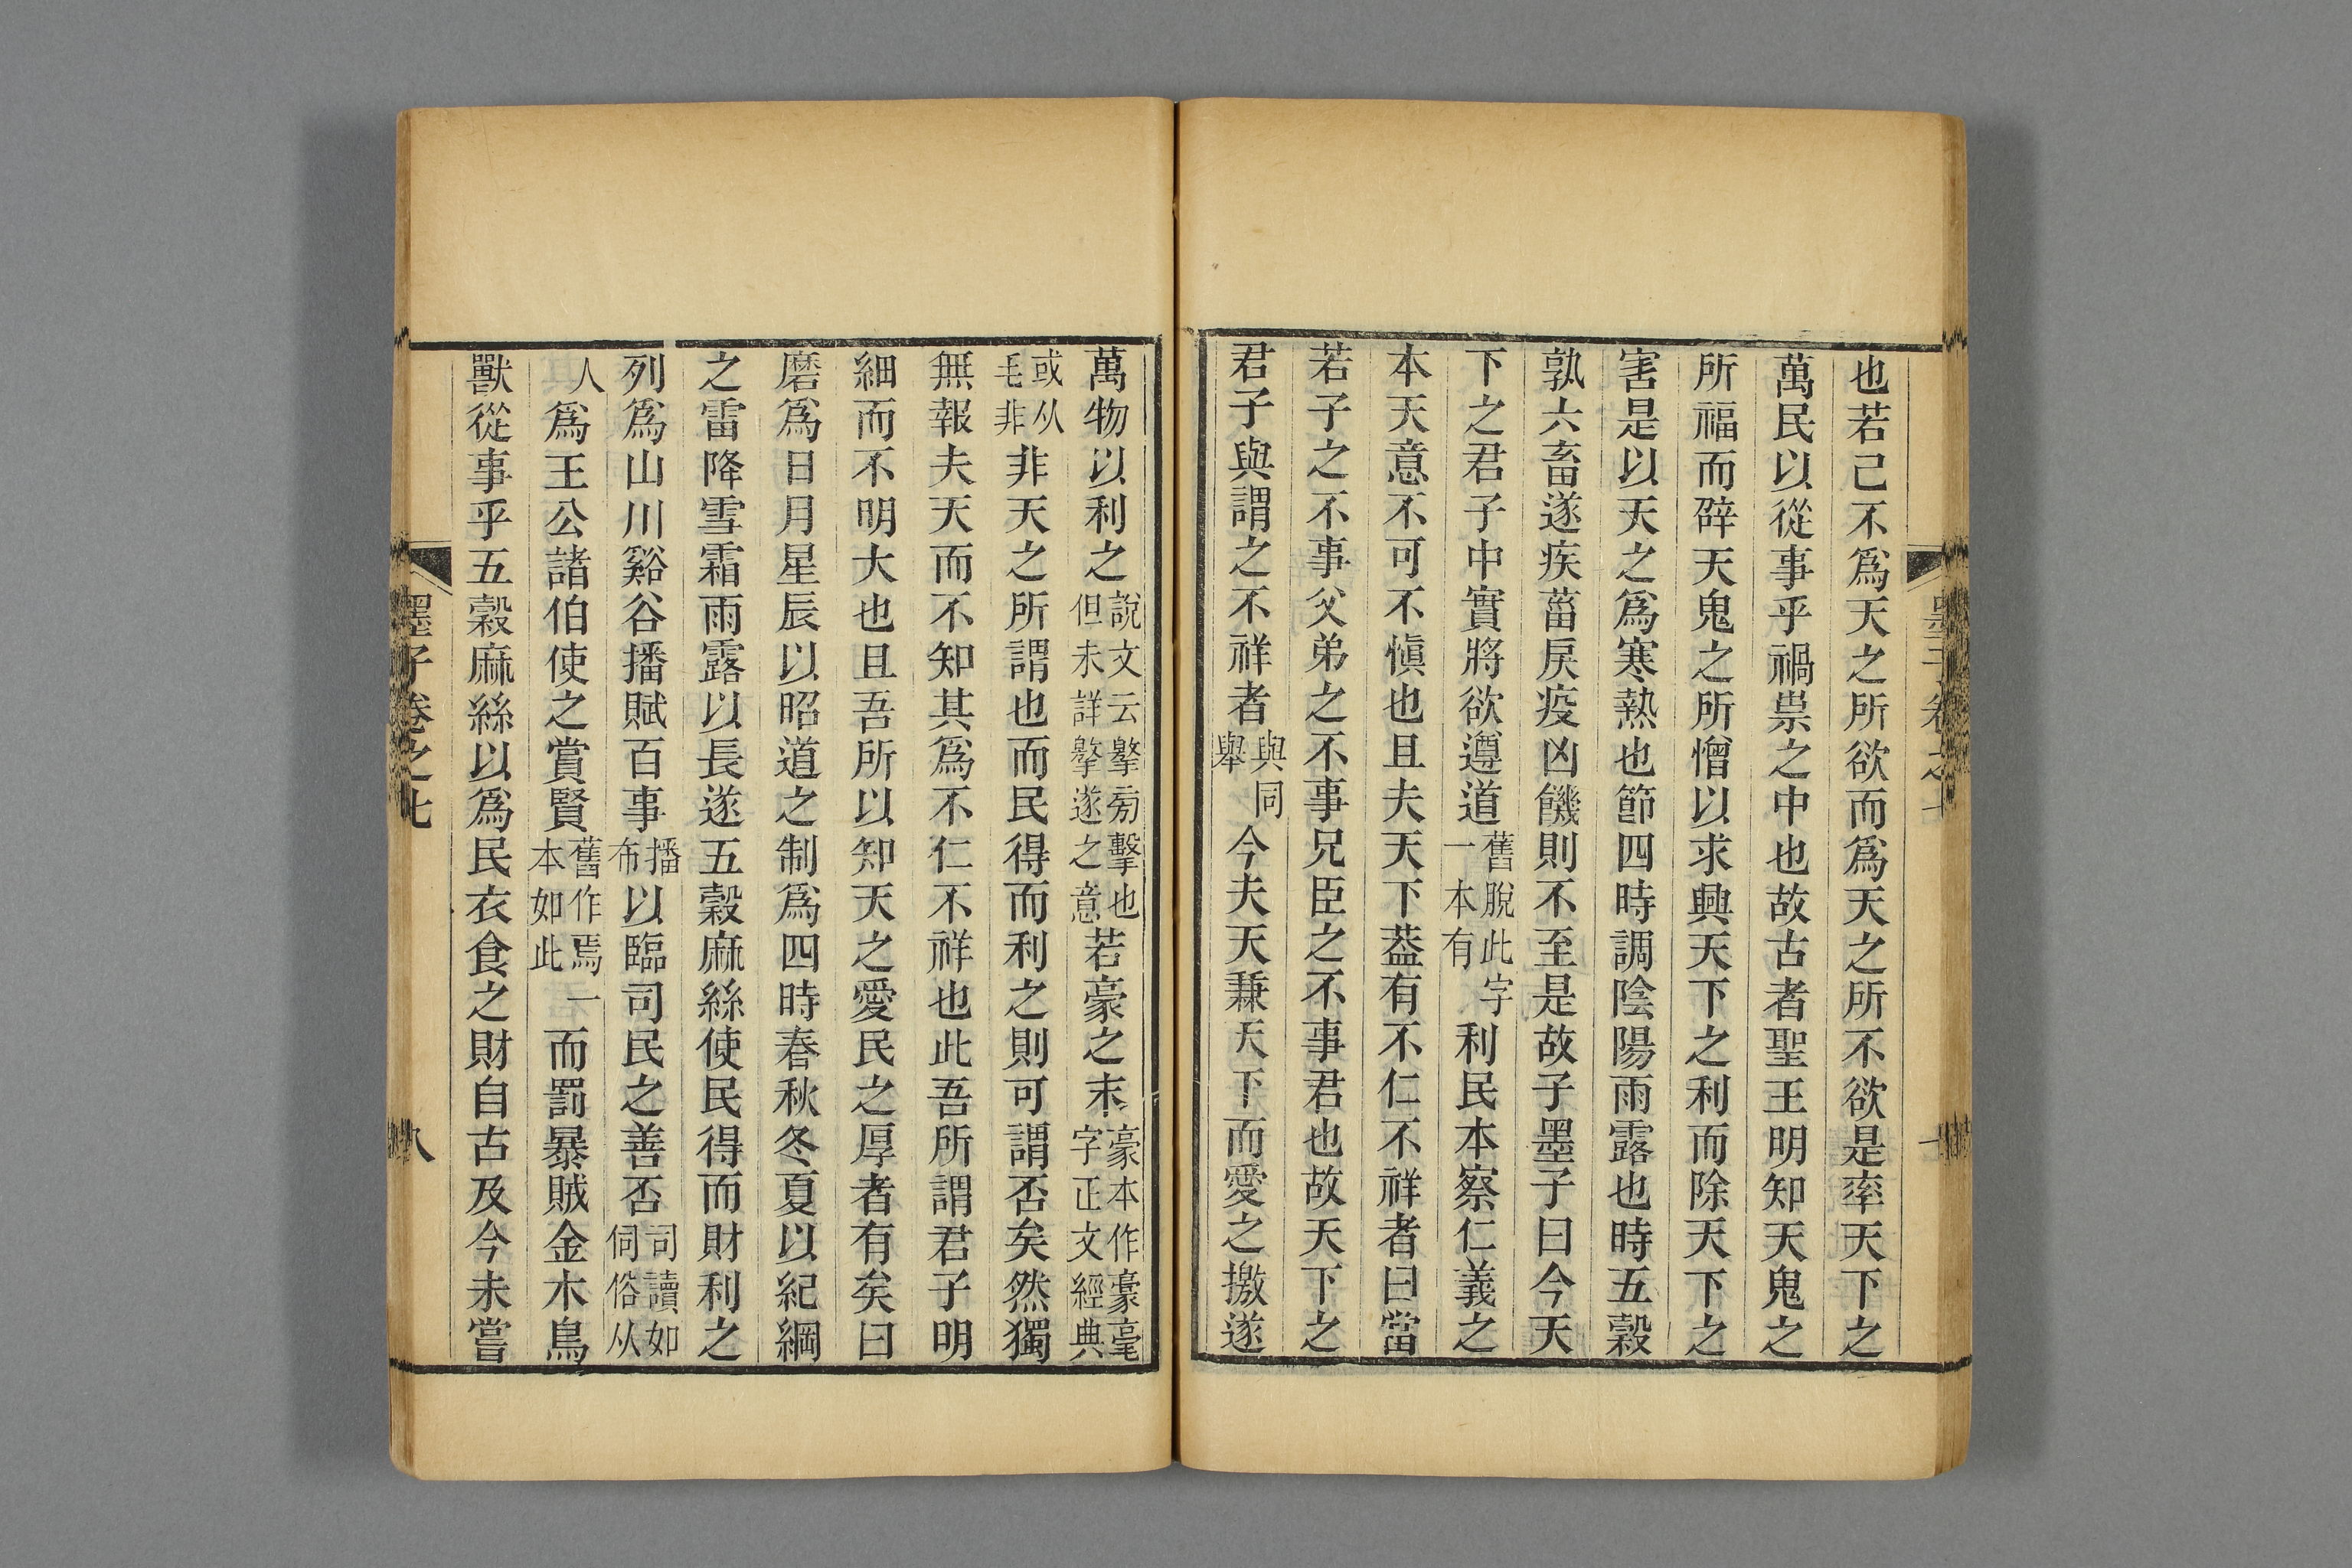 也若己不爲天之所欲而爲天之所不欲是率天下之
萬民以從事乎禍祟之中也故古者聖王明知天鬼之
所福而辟天鬼之所憎以求興天下之利而除天下之
害是以天之爲寒熱也節四時調陰陽雨露也時五穀
孰六畜遂疾菑戾疫凶饑則不至是故子墨子曰今天
下之君子中實將欲遵道舊脫此字一本有利民本察仁義之
本天意不可不愼也且夫天下葢有不仁不祥者曰當
若子之不事父弟之不事兄臣之不事君也故天下之
君子與謂之不祥者與同舉今夫天兼天下而愛之撽遂
萬物以利之說文云擊㫄擊也但未詳擊遂之意若豪之末豪本作豪毫字正文經典
或从毛非非天之所謂也而民得而利之則可謂否矣然獨
無報夫天而不知其爲不仁不祥也此吾所謂君子明
細而不明大也且吾所以知天之愛民之厚者有矣曰
磨爲日月星辰以昭道之制爲四時春秋冬夏以紀綱
之雷降雪霜雨露以長遂五穀麻絲使民得而財利之
列爲山川谿谷播賦百事播布以臨司民之善否司讀如伺俗从
人爲王公諸伯使之賞賢舊作焉一本如此而罰暴賊金木鳥
獸從事乎五穀麻絲以爲民衣食之財自古及今未嘗
墨子卷之七
八